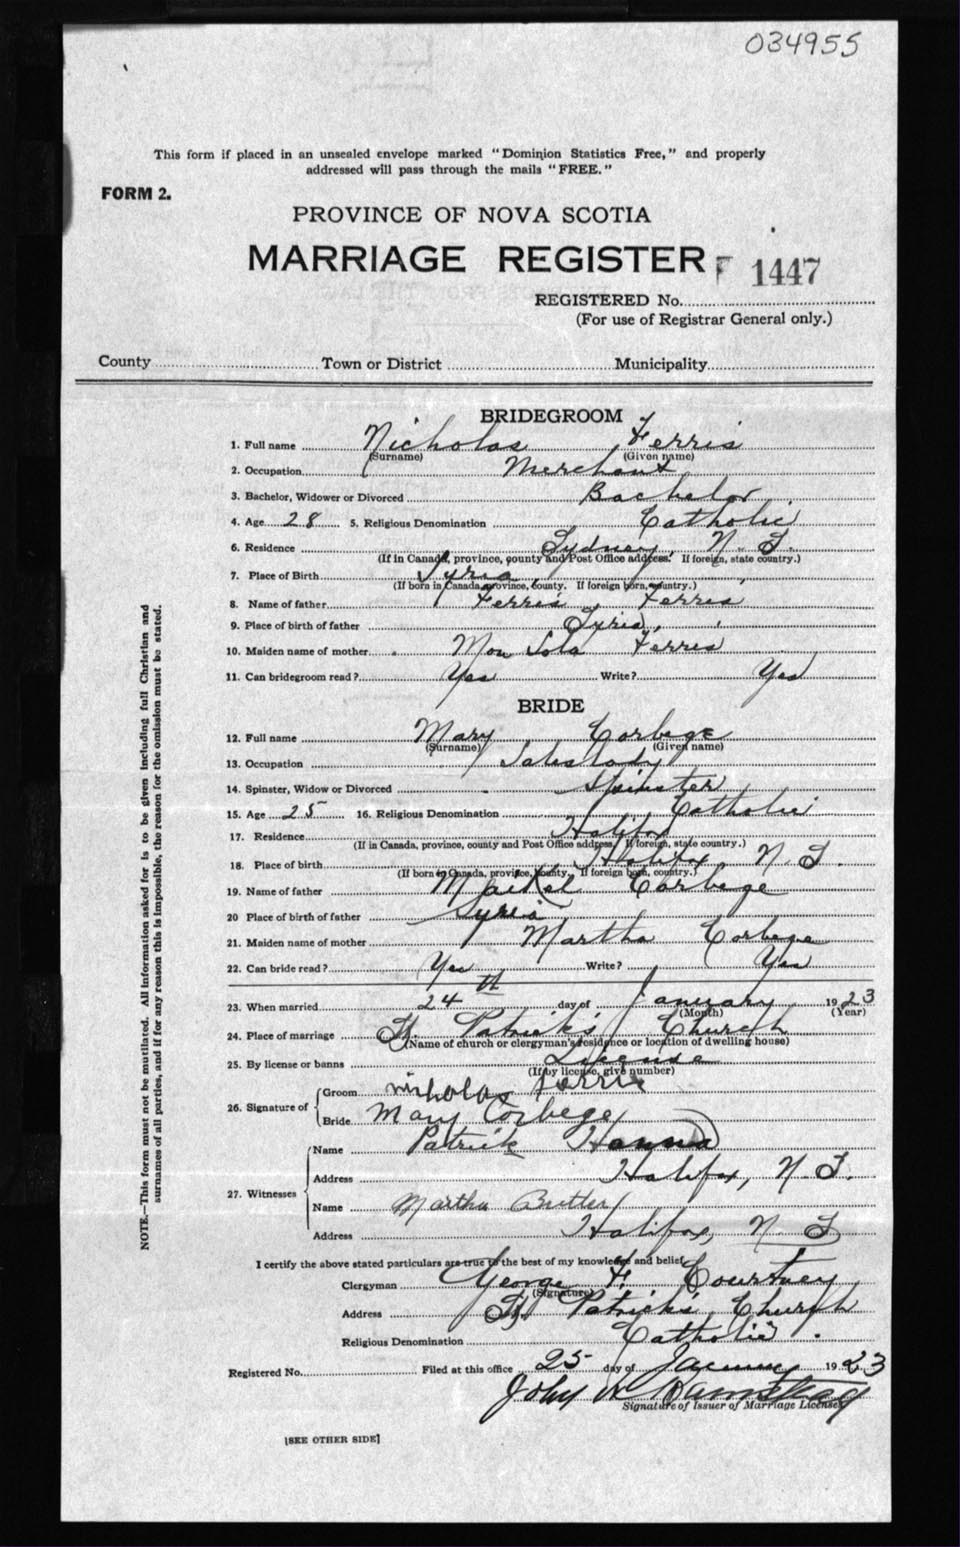 034955
This form if placed in an unsealed envelope marked "Dominion Statistics Free," and properly
addressed will pass through the mails "FREE."
FORM 2.
PROVINCE OF NOVA SCOTIA
MARRIAGE REGISTER
F 1447
REGISTERED No.
(For use of Registrar General only.)
County Town or District Municipality
BRIDEGROOM
1. Full name Nicholas Ferris
(Surname) (Given name)
2. Occupation Merchant
3. Bachelor, Widower or Divorced Bachelor
4. Age 28 5. Religious Denomination Catholic
6. Residence Sydney, N. S.
(If in Canada, province, county and Post Office address. If foreign, state country.)
7. Place of Birth Syria
(If born in Canada, province, county. If foreign born, country.)
8. Name of father Ferris Ferris
9. Place of birth of father Syria
10. Maiden name of mother Ferris
11. Can bridegroom read? Yes Write? Yes
BRIDE
12. Full name Mary Corbege
(Surname) (Given name)
13. Occupation Saleslady
14. Spinster, Widow or Divorced Spinster
15. Age 25 16. Religious Denomination Catholic
17. Residence Halifax
(If in Canada, province, county and Post Office address. If foreign, state country.)
18. Place of birth Halifax, N. S.
(If born in Canada, province, county. If foreign born, country.)
19. Name of father Maikel Corbege
20 Place of birth of father Syria
21. Maiden name of mother Martha Corbege
22. Can bride read? Yes Write? Yes
23. When married 24th day of January 1923
(Month) (Year)
24. Place of marriage St. Patrick's Church
(Name of church or clergyman's residence or location of dwelling house)
25. By license or banns License
(If by license, give number)
26. Signature of Groom nicholas Ferris
Bride Mary Corbege
27. Witnesses Name Patrick Hanna
Address Halifax, N. S.
Name Martha Butler
Address Halifax, N. S
I certify the above stated particulars are true to the best of my knowledge and belief,
Clergyman George F. Courtney
(Signature)
Address St. Patrick's Church
Religious Denomination Catholic
Registered No. Filed at this office 25 day of January 1923
John
Signature of Issuer of Marriage Licenses
[SEE OTHER SIDE]
NOTE.—This form must not be mutilated. All information asked for is to be given including full Christian and
surnames of all parties, and if for any reason this is impossible, the reason for the omission must be stated.